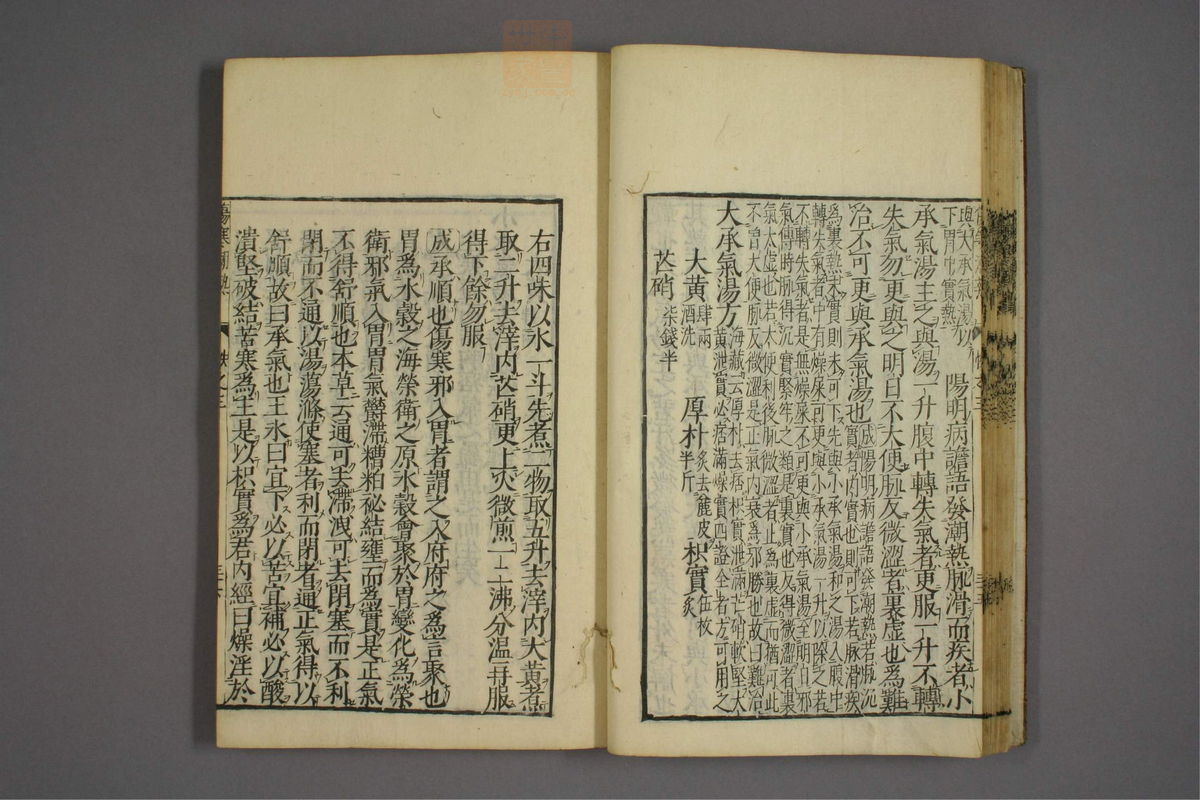 與大承氣湯以
下胃中實熱
陽明病譫語發潮熱脉滑而疾者小
承氣湯主之與湯一升腹中轉失氣者更服一升不轉
失氣勿更與之明日不大便脉反微澀者裏虛也爲難
治不可更與承氣湯也
成陽明病譫語發潮熱若脉沉
實者內實也則可下若脉滑疾
爲裏熱未實則未可下先與小承氣湯和之湯入腹中
轉失氣者中有燥屎可更與小承氣湯一升以除之若
不轉失氣者是無燥屎不可更與小承氣湯至明日邪
氣傳時脉得沉實緊牢之類是裏實也反得微澀者裏
氣大虛也若大便利後脉微澀者止爲裏虛而猶可此
不曾大便脉反微澀是正氣內衰爲邪勝也故曰難治
大承氣湯方
海藏云厚朴去痞枳實泄滿芒硝軟堅大
黃泄實必痞滿燥實四證全者方可用之
大黃
肆兩
酒洗
厚朴
半斤
炙去麄皮
枳實
伍枚
炙
芒硝
柒錢半
右四味以水一斗先煮二物取五升去滓內大黃煮
取二升去滓內芒硝更上火微煎一二沸分溫再服
得下餘勿服
成承順也傷寒邪入胃者謂之入府府之爲言聚也
胃爲水穀之海榮衛之原水穀會聚於胃變化爲榮
衛邪氣入胃胃氣鬱滯糟粕秘結壅而爲實是正氣
不得舒順也本草云通可去滯洩可去閉塞而不利
閉而不通以湯蕩滌使塞者利而閉者通正氣得以
舒順故曰承氣也王氷曰宜下必以苦宜補必以酸
潰堅破結苦寒爲主是以枳實爲君內經曰燥淫於
傷寒潮熱